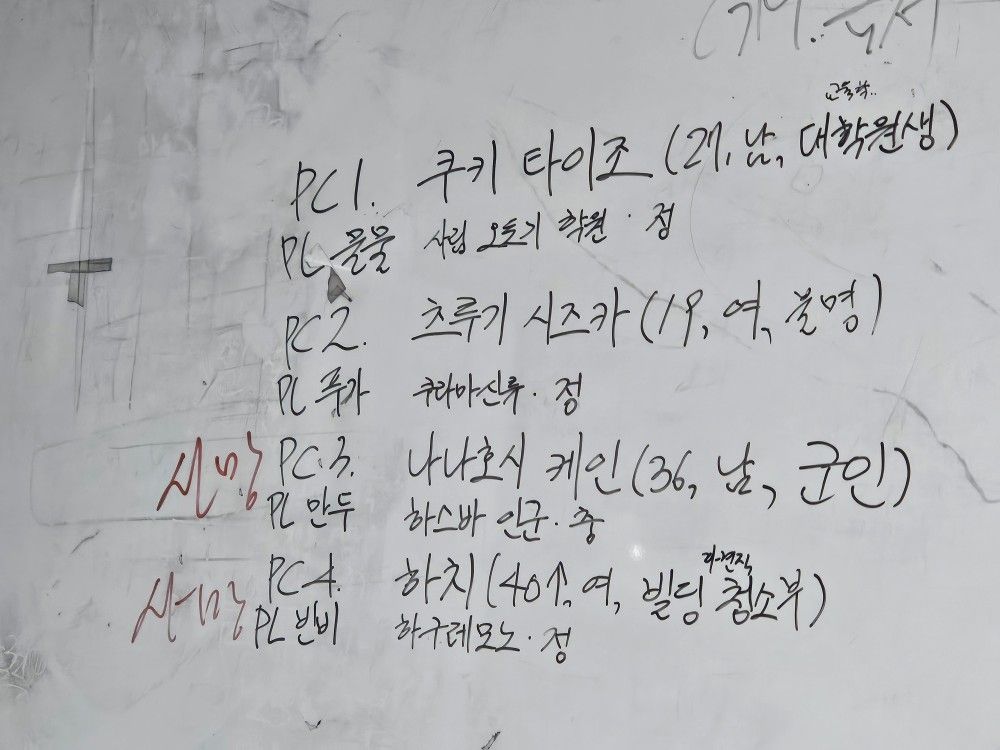 교육학..
PC1. 쿠키 타이조 (27, 남, 대학원생)
PL 물물 사립 오토기 학원 · 정
PC2. 츠루기 시즈카 (19, 여, 불명)
PL 푸가 쿠라마신류 · 정
사망 PC3. 나나호시 케인 (36, 남, 군인)
PL 만두 하스바 인군 · 중
파견직
사망 PC4. 하치 (40↑, 여, 빌딩 청소부)
PL 빈비 하구레모노 · 정